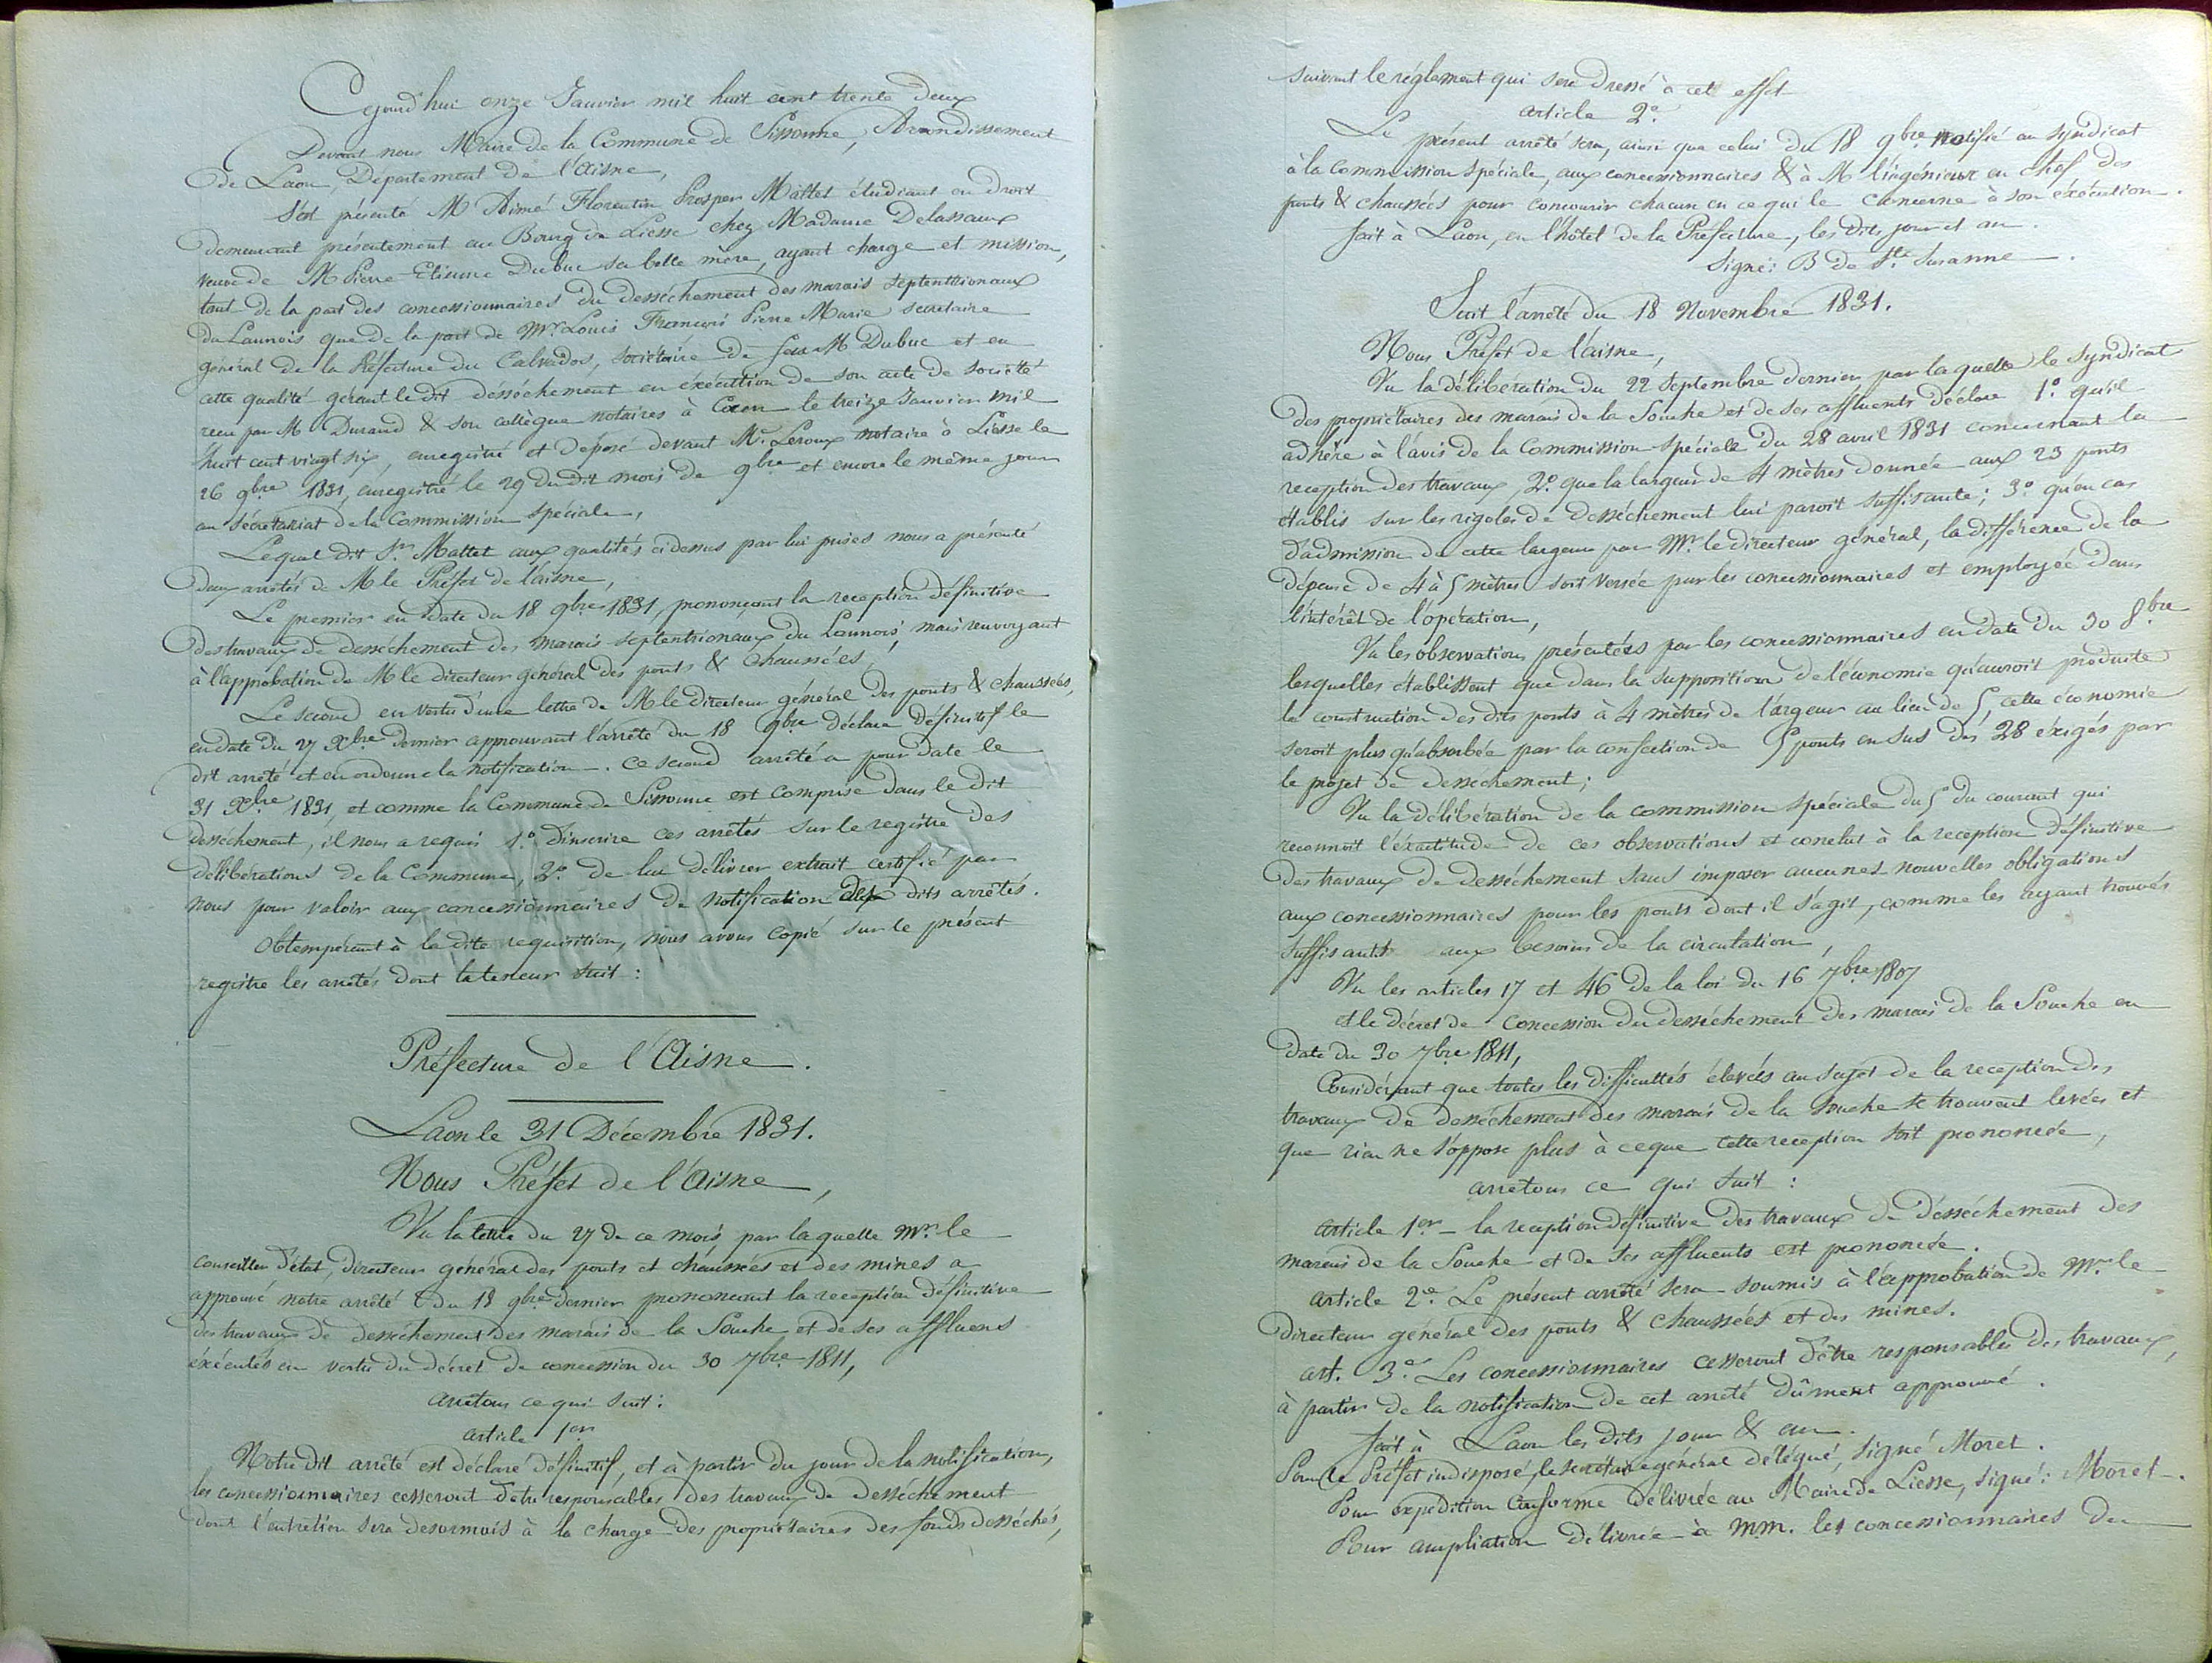 Cejourd'hui onze Janvier mil huit cent trente deux
Devant nous Maire de la Commune de Sissonne, Arrondissement
de Laon, Département de l'Aisne,
S'est présenté M Aimé Florentin Prosper Mattet étudiant en droit
demeurant présentement au Bourg de Liesse chez Madame Delassaux
veuve de M Pierre Etienne Dubuc sa belle mère, ayant charge et mission,
tant de la part des concessionnaires du desséchement des marais septentrionaux
du Launois que de la part de Mr. Louis François Pierre Marie secretaire
général de la Préfecture du Calvados, sociétaire de feu M Dubuc et en
cette qualité gérant le dit desséchement en éxécution de son acte de société
reçu par M Durand & son collègue notaires à Caen le treize Janvier mil
huit cent vingt six, enregistré et déposé devant Me. Leroux notaire à Liesse le
26 9bre 1831, enregistré le 29 du dit mois de 9bre et encore le même jour
au sécrétariat de la Commission spéciale,
Lequel dit Sr. Mattet aux qualités cidessus par lui prises nous a présenté
deux arrêtés de M le Préfet de l'aisne,
Le premier en date du 18 9bre 1831, prononçant la reception définitive
des travaux de desséchement des marais septentrionaux du Launois, mais renvoyant
à l'approbation de M le directeur général des ponts & chaussées,
Le second en vertu d'une lettre de M le directeur général des ponts & chaussées,
en date du 27 Xbre dernier approuvant l'arrêté du 18 9bre déclare définitif le
dit arrêté et en ordonne la notification. ce second arrêté a pour date le
31 Xbre 1831, et comme la Commune de Sissonne est comprise dans le dit
desséchement, il nous a requis 1.º d'inscrire ces arrêtés sur le registre des
délibérations de la Commune, 2.º de lui délivrer extrait certifié par
nous pour valoir aux concessionnaires de notification des dits arrêtés.
Obtempérant à la dite requisition, nous avons copié sur le présent
registre les arrêtés dont la teneur suit :
Préfecture de l'Aisne.
Laon le 31 Décembre 1831.
Nous Préfet de l'Aisne,
Vu la lettre du 27 de ce mois par laquelle Mr. le
conseiller d'état, directeur général des ponts et chaussées et des mines a
approuvé notre arrêté du 18 9bre dernier prononçant la reception définitive
des travaux de desséchement des marais de la Souche et de ses affluens
éxécutés en vertu du décret de concession du 30 7bre 1811,
arrêtons ce qui suit :
article 1er
Notre dit arrêté est déclaré définitif, et à partir du jour de la notification,
les concessionnaires cesseront d'etre responsables des travaux de desséchement
dont l'entretien sera desormais à la charge des propriétaires des fonds desséchés,
suivant le réglement qui sera dressé à cet effet
article 2e.
Le présent arrêté sera, ainsi que celui du 18 9bre notifié au syndicat
à la Commission spéciale, aux concessionnaires & à M l'ingénieur en chef des
ponts & chaussées pour concourir chacun en ce qui le concerne à son éxécution.
fait à Laon, en l'hôtel de la Préfecture, les dits jour et an.
Signé : B de Ste. Suzanne.
Suit l'arrêté du 18 Novembre 1831.
Nous Préfet de l'aisne,
Vu la délibération du 22 Septembre dernier par laquelle le syndicat
des propriétaires des marais de la Souche et de ses affluents déclare 1.º qu'il
adhère à l'avis de la Commission spéciale du 28 avril 1831 concernant la
reception des travaux, 2.º que la largeur de 4 mètres donnée aux 23 ponts
établis sur les rigoles de desséchement lui paroit suffisante ; 3.º qu'en cas
d'admission de cette largeur par Mr. le directeur général, la différence de la
dépense de 4 à 5 mètres soit versée par les concessionnaires et employée dans
l'intérêt de l'opération,
Vu les observations présentées par les concessionnaires en date du 30 8bre
lesquelles établissent que dans la supposition de l'économie qu'auroit produite
la construction des dits ponts à 4 mètres de largeur au lieu de 5, cette économie
seroit plus qu'absorbée par la confection de 5 ponts en sus des 28 éxigés par
le projet de desséchement ;
Vu la délibération de la commission spéciale du 5 du courant qui
reconnoit l'éxactitude de ces observations et conclut à la reception définitive
des travaux de desséchement sans imposer aucunes nouvelles obligations
aux concessionnaires pour les ponts dont il s'agit, comme les ayant trouvés
suffisants aux besoins de la circulation,
Vu les articles 17 et 46 de la loi du 16 7bre 1807
et le décret de concession du desséchement des marais de la Souche en
date du 30 7bre 1811,
Considérant que toutes les difficultés élevées au sujet de la reception des
travaux de desséchement des marais de la Souche se trouvent levées et
que rien ne s'oppose plus à ce que cette reception soit prononcée,
arrêtons ce qui suit :
article 1er - la reception définitive des travaux de desséchement des
marais de la Souche et de ses affluents est prononcée.
article 2e. Le présent arrêté sera soumis à l'approbation de Mr. le
Directeur général des ponts & chaussées et des mines.
art. 3e. Les concessionnaires cesseront d'être responsables des travaux,
à partir de la notification de cet arrêté dûment approuvé.
fait à Laon les dits jour & an.
Pour le Préfet indisposé, le secrétaire général délégué, signé Moret.
Pour expédition conforme délivrée au Maire de Liesse, signé : Moret.
Pour ampliation délivrée à MM. les concessionnaires du